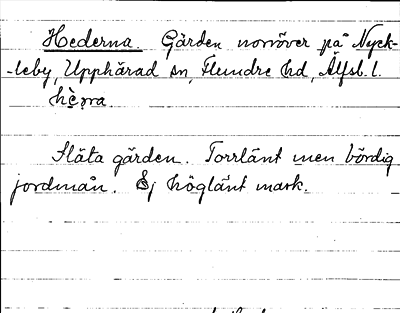 Hederna. Gården norröver på Nyck-
-leby, Upphärad sn, Flundre hd, Älfsb. l.
hè̤ṛna.
Släta gården. Torrlänt men bördig
jordmån. Ej höglänt mark.